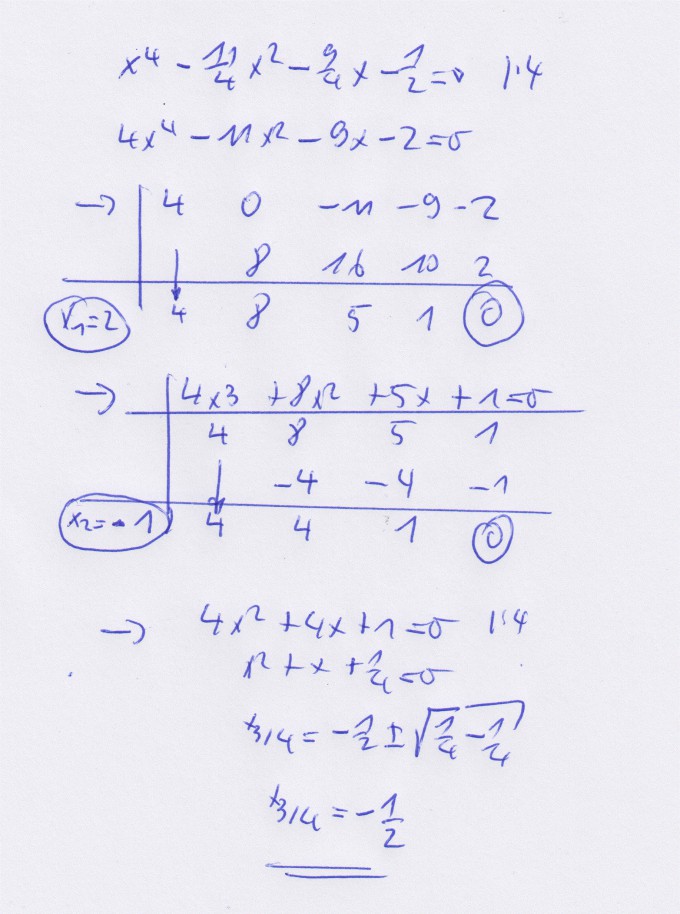 x⁴ - 11/4 x² - 9/4 x - 1/2 = 0 |·4
4x⁴ - 11x² - 9x - 2 = 0
→ 4 0 -11 -9 -2
8 16 10 2
x₁=2 4 8 5 1 0
→ 4x3 +8x² +5x +1=0
4 8 5 1
-4 -4 -1
x₂=-1 4 4 1 0
→ 4x² + 4x + 1 = 0 |:4
x² + x + 1/4 = 0
x3/4 = -1/2 ± √(1/4 - 1/4)
x3/4 = -1/2